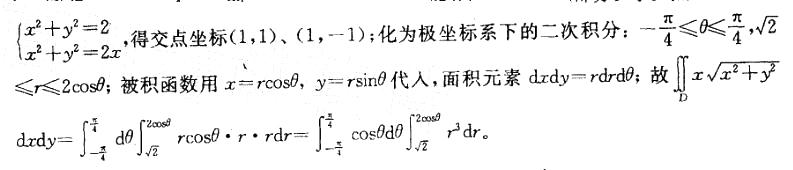 {x²+y²=2 x²+y²=2x ,得交点坐标(1,1)、(1,-1);化为极坐标系下的二次积分:-π/4≤θ≤π/4,√2
≤r≤2cosθ;被积函数用 x=rcosθ, y=rsinθ代入,面积元素 dxdy=rdrdθ;故∬_D x√(x²+y²)
dxdy=∫_{-π/4}^{π/4} dθ∫_{√2}^{2cosθ} rcosθ·r·rdr=∫_{-π/4}^{π/4} cosθdθ∫_{√2}^{2cosθ} r³dr。